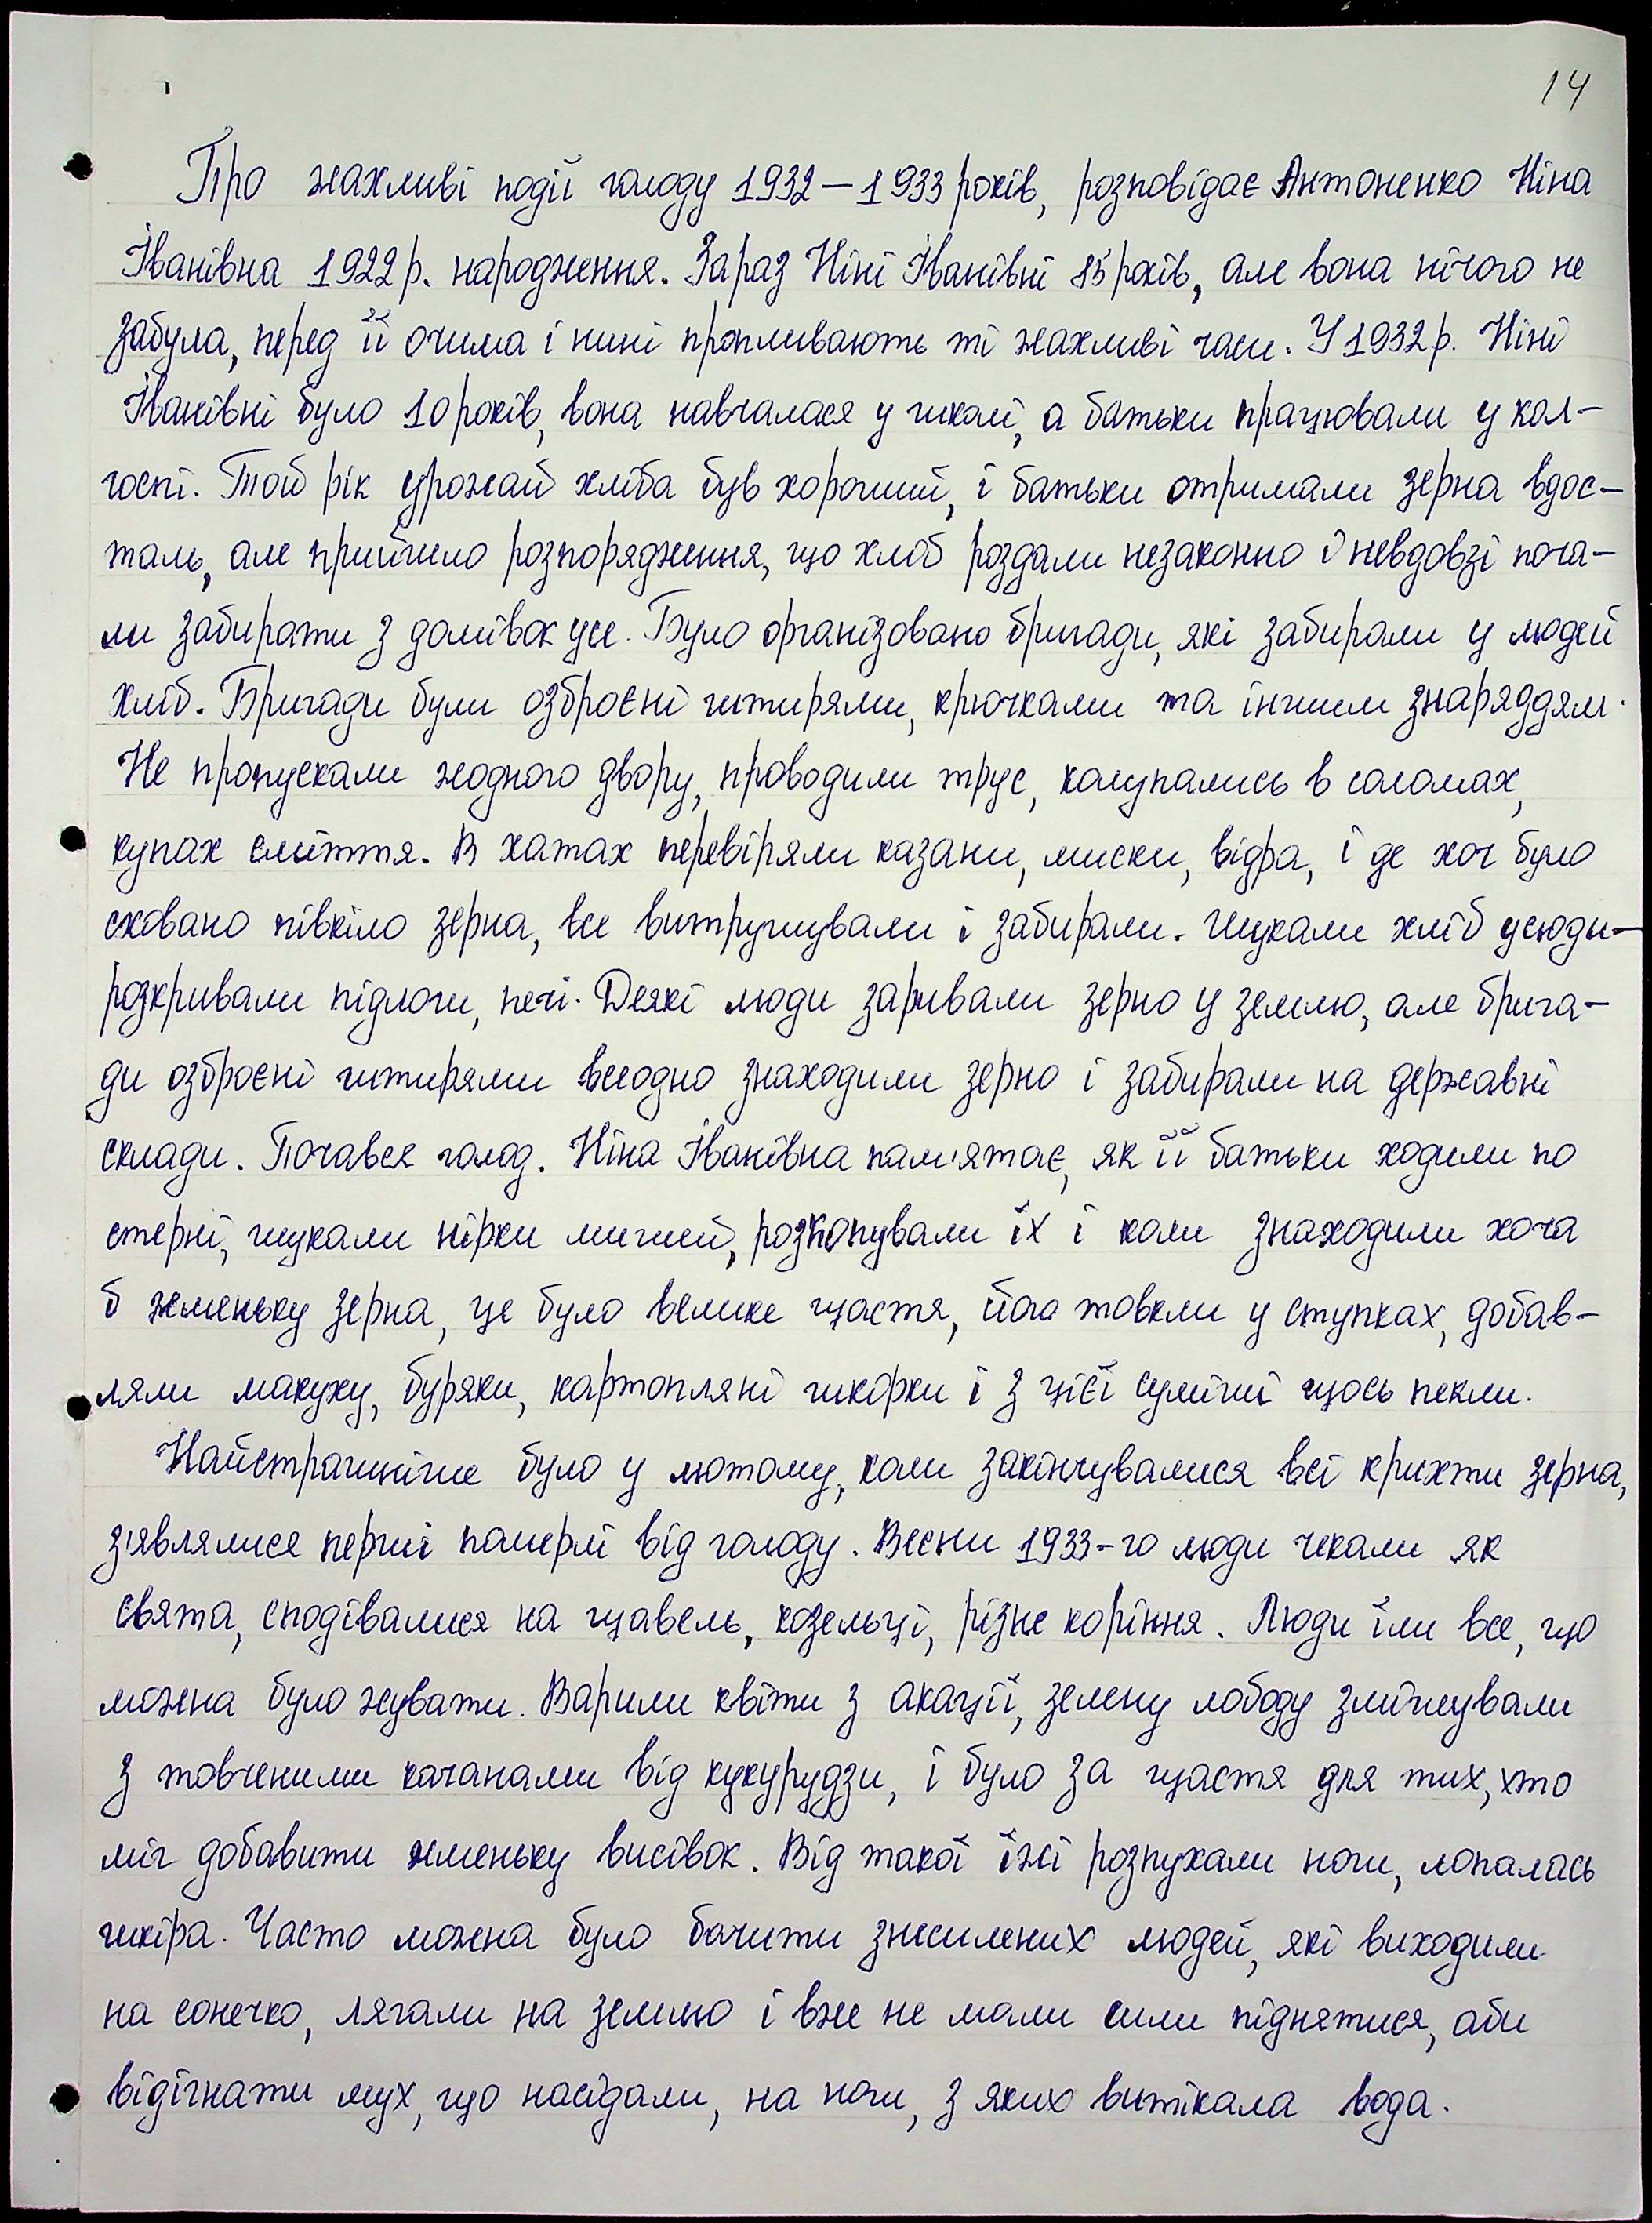 14
Про жахливі події голоду 1932–1933 років, розповідає Антоненко Ніна
Іванівна 1922 р. народження. Зараз Ніні Іванівні 85 років, але вона нічого не
забула, перед її очима і нині пропливають ті жахливі часи. У 1932 р. Ніні
Іванівні було 10 років, вона навчалася у школі, а батьки працювали у кол-
госпі. Той рік урожай хліба був хороший, і батьки отримали зерна вдос-
таль, але прийшло розпорядження, що хліб роздали незаконно і невдовзі поча-
ли забирати з домівок усе. Було організовано бригади, які забирали у людей
хліб. Бригади були озброєні штирями, крючками та іншим знаряддям.
Не пропускали жодного двору, проводили трус, колупались в соломах,
купах сміття. В хатах перевіряли казани, миски, відра, і де хоч було
сховано півкіло зерна, все витрушували і забирали. Шукали хліб усюди–
розкривали підлоги, печі. Деякі люди заривали зерно у землю, але брига-
ди озброєні штирями всеодно знаходили зерно і забирали на державні
склади. Почався голод. Ніна Іванівна пам'ятає, як її батьки ходили по
стерні, шукали нірки мишей, розкопували їх і коли знаходили хоча
б жменьку зерна, це було велике щастя, його товкли у ступках, добав-
ляли макуху, буряки, картопляні шкірки і з цієї суміші щось пекли.
Найстрашніше було у лютому, коли закінчувалися всі крихти зерна,
з'являлися перші померлі від голоду. Весни 1933-го люди чекали як
свята, сподівалися на щавель, козельці, різне коріння. Люди їли все, що
можна було жувати. Варили квіти з акації, зелену лободу змішували
з товченими качанами від кукурудзи, і було за щастя для тих, хто
міг добавити жменьку висівок. Від такої їжі розпухали ноги, лопалась
шкіра. Часто можна було бачити знесилених людей, які виходили
на сонечко, лягали на землю і вже не мали сили піднятися, аби
відігнати мух, що насідали, на ноги, з яких витікала вода.